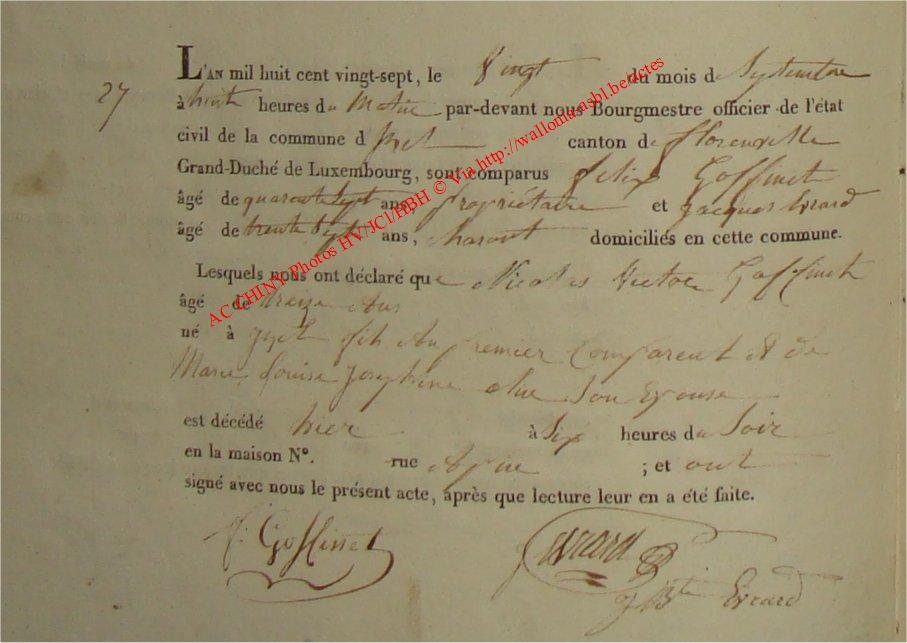 27
L'AN mil huit cent vingt-sept, le Vingt du mois de Septembre
à huit heures du Matin par-devant nous Bourgmestre officier de l'état
civil de la commune d' Izel canton de florenville
Grand-Duché de Luxembourg, sont comparus felix Goffinet
âgé de quarante Sept ans, propriétaire et Jacques Evrard
âgé de trente Sept ans, domiciliés en cette commune.
Lesquels nous ont déclaré que Nicolas Victor Goffinet
âgé de treize Ans
né à Izel fils du premier Comparent et de
Marie Louise Josephine son Epouse
est décédé hier à Six heures du Soir
en la maison N°. rue ; et ont
signé avec nous le présent acte, après que lecture leur en a été faite.
f. Goffinet Evrard
Evrard
AC CHINY Photos HV/JCI/HBH © Via http://wallonia-asbl.be/actes